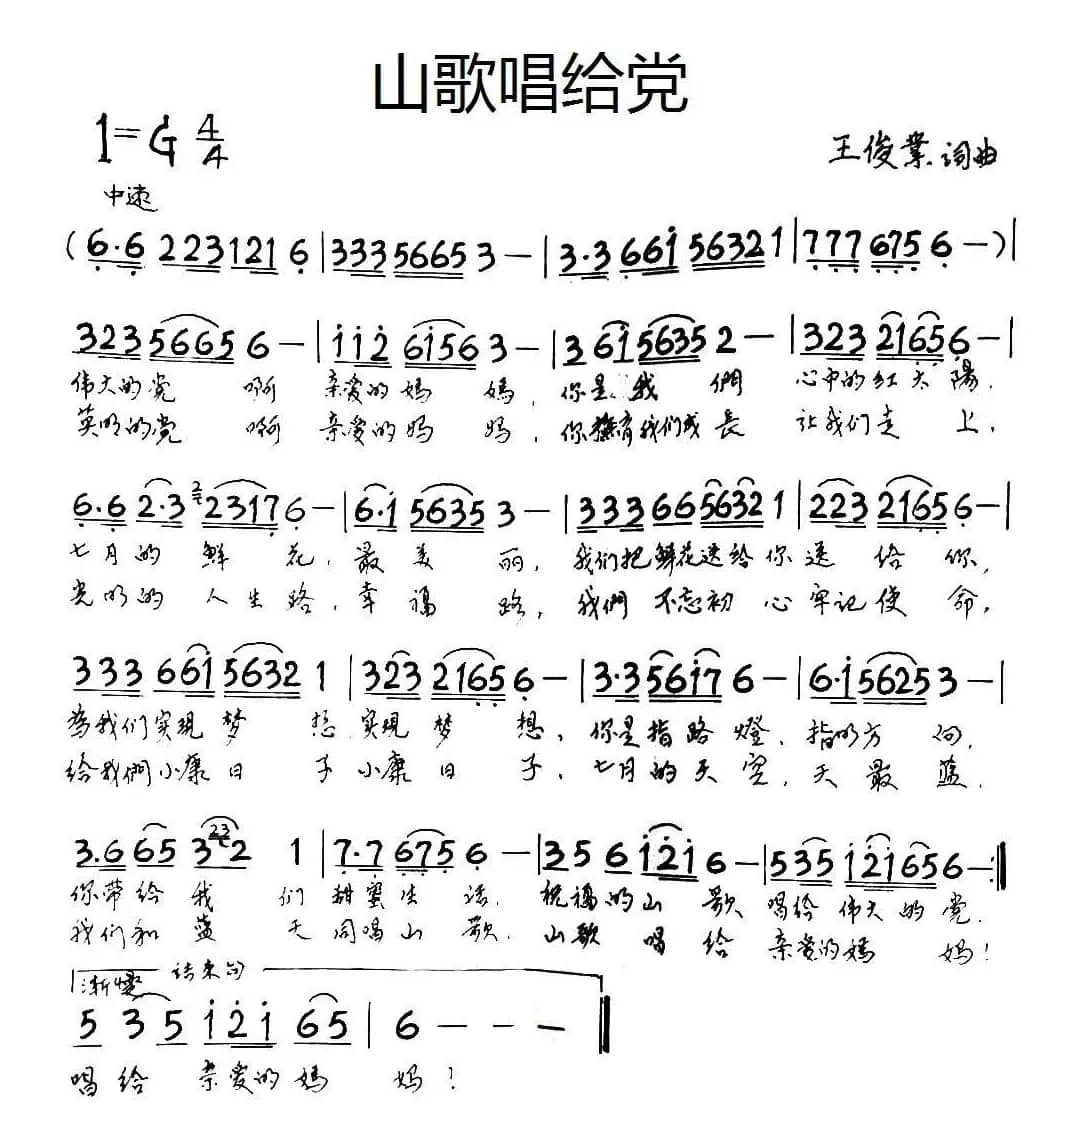 山歌唱给党
1=G 4/4
王俊業 词曲
中速
(6·6 223121 6 | 333 5665 3 — | 3·3 661 56321 | 777 675 6 — ) |
323 5665 6 — | 112 6156 3 — | 3 61 5635 2 — | 323 2165 6 — |
伟大的党 啊 亲爱的妈 媽, 你是我 們 心中的红太 陽.
英明的党 啊 亲爱的妈 妈, 你撫育我们成 長 让我们走 上,
6·6 2·3 2 2317 6 — | 6·1 5635 3 — | 333 66 5632 1 | 223 2165 6 — |
七月的 鲜 花, 最 美 丽, 我们把鲜花送给你 送 给 你,
光明的 人生路, 幸 福 路, 我們 不忘初 心 牢记使 命,
333 661 5632 1 | 323 2165 6 — | 3·3 5617 6 — | 6·1 5625 3 — |
為我们实现梦 想 实现 梦 想, 你是指 路 燈, 指明方 向,
给我們小康日 子 小康日 子, 七月的天空, 天最 蓝.
3·6 65 3 23 2 1 | 7·7 675 6 — | 35 6 121 6 — | 535 121656 — :|
你带给 我 们 甜蜜生 活. 祝福的山 歌 唱给 伟大的党.
我们和 蓝 天 同唱山 歌. 山歌 唱 给 亲爱的妈 妈!
渐慢 结束句
5 3 5 121 65 | 6 — — — ‖
唱 给 亲爱的媽 妈!